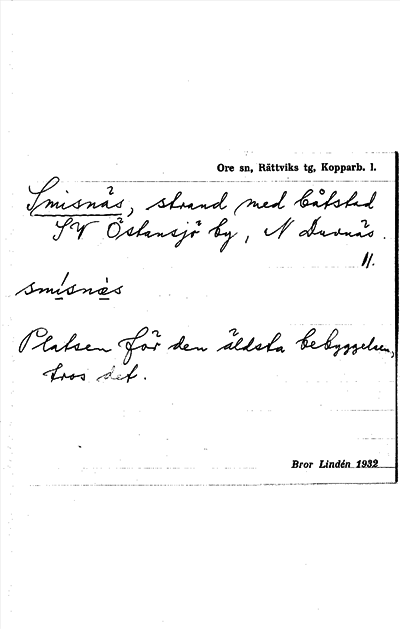 Ore sn, Rättviks tg, Kopparb. l.
Smisnäs, strand med båtstad
SV Östansjö by, N Duvnäs.
11.
smísnès
Platsen för den äldsta bebyggelsen,
tros det.
Bror Lindén 1932